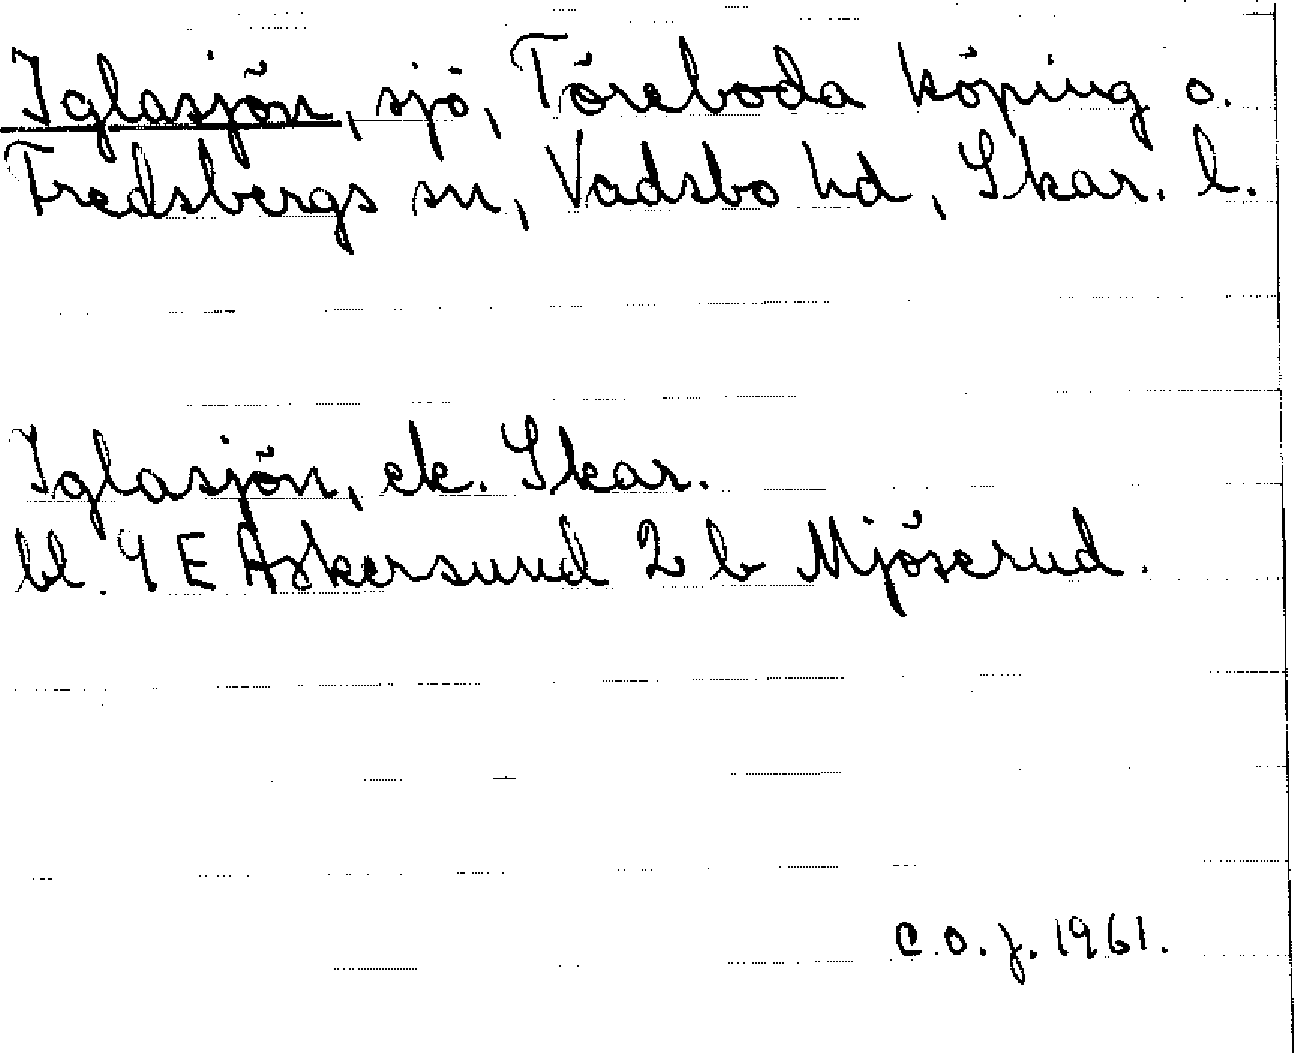 Iglasjön, sjö, Töreboda köping o.
Fredsbergs sn, Vadsbo hd, Skar. l.
Iglasjön, ek. Skar.
bl. 9 E Askersund 2 b Mjöserud.
C.O.J. 1961.